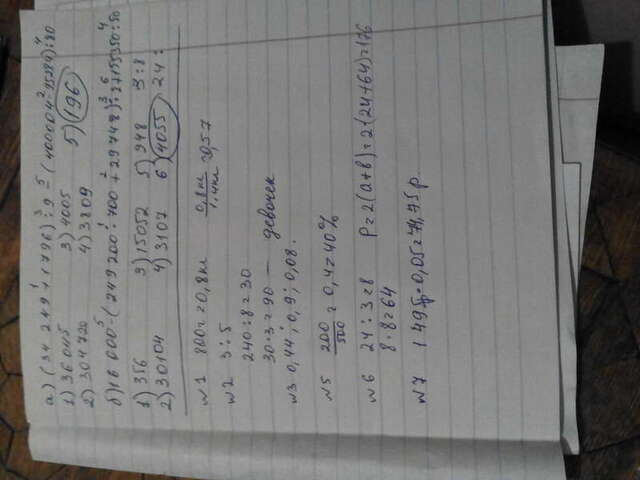 а) (34 249 + 1796) : 9 - (400004 - 95284) : 80
1) 36045 3) 4005 5) 196
2) 304720 4) 3809
б) 16 000 - (249 200 : 700 + 29748) : 2 + 155350 : 50
1) 356 3) 15052 5) 948 3:8
2) 30104 4) 3107 6) 4055 24:
№1 800г = 0,8кг 0,8кг/1,4кг = 0,57
№2 3:5
240:8=30
30·3=90 — девочек
№3 0,44; 0,9; 0,08.
№5 200/500 = 0,4 = 40%
№6 24:3=8 P=2(a+b)=2(24+64)=176
8·8=64
№7 1495р·0,05=74,75р